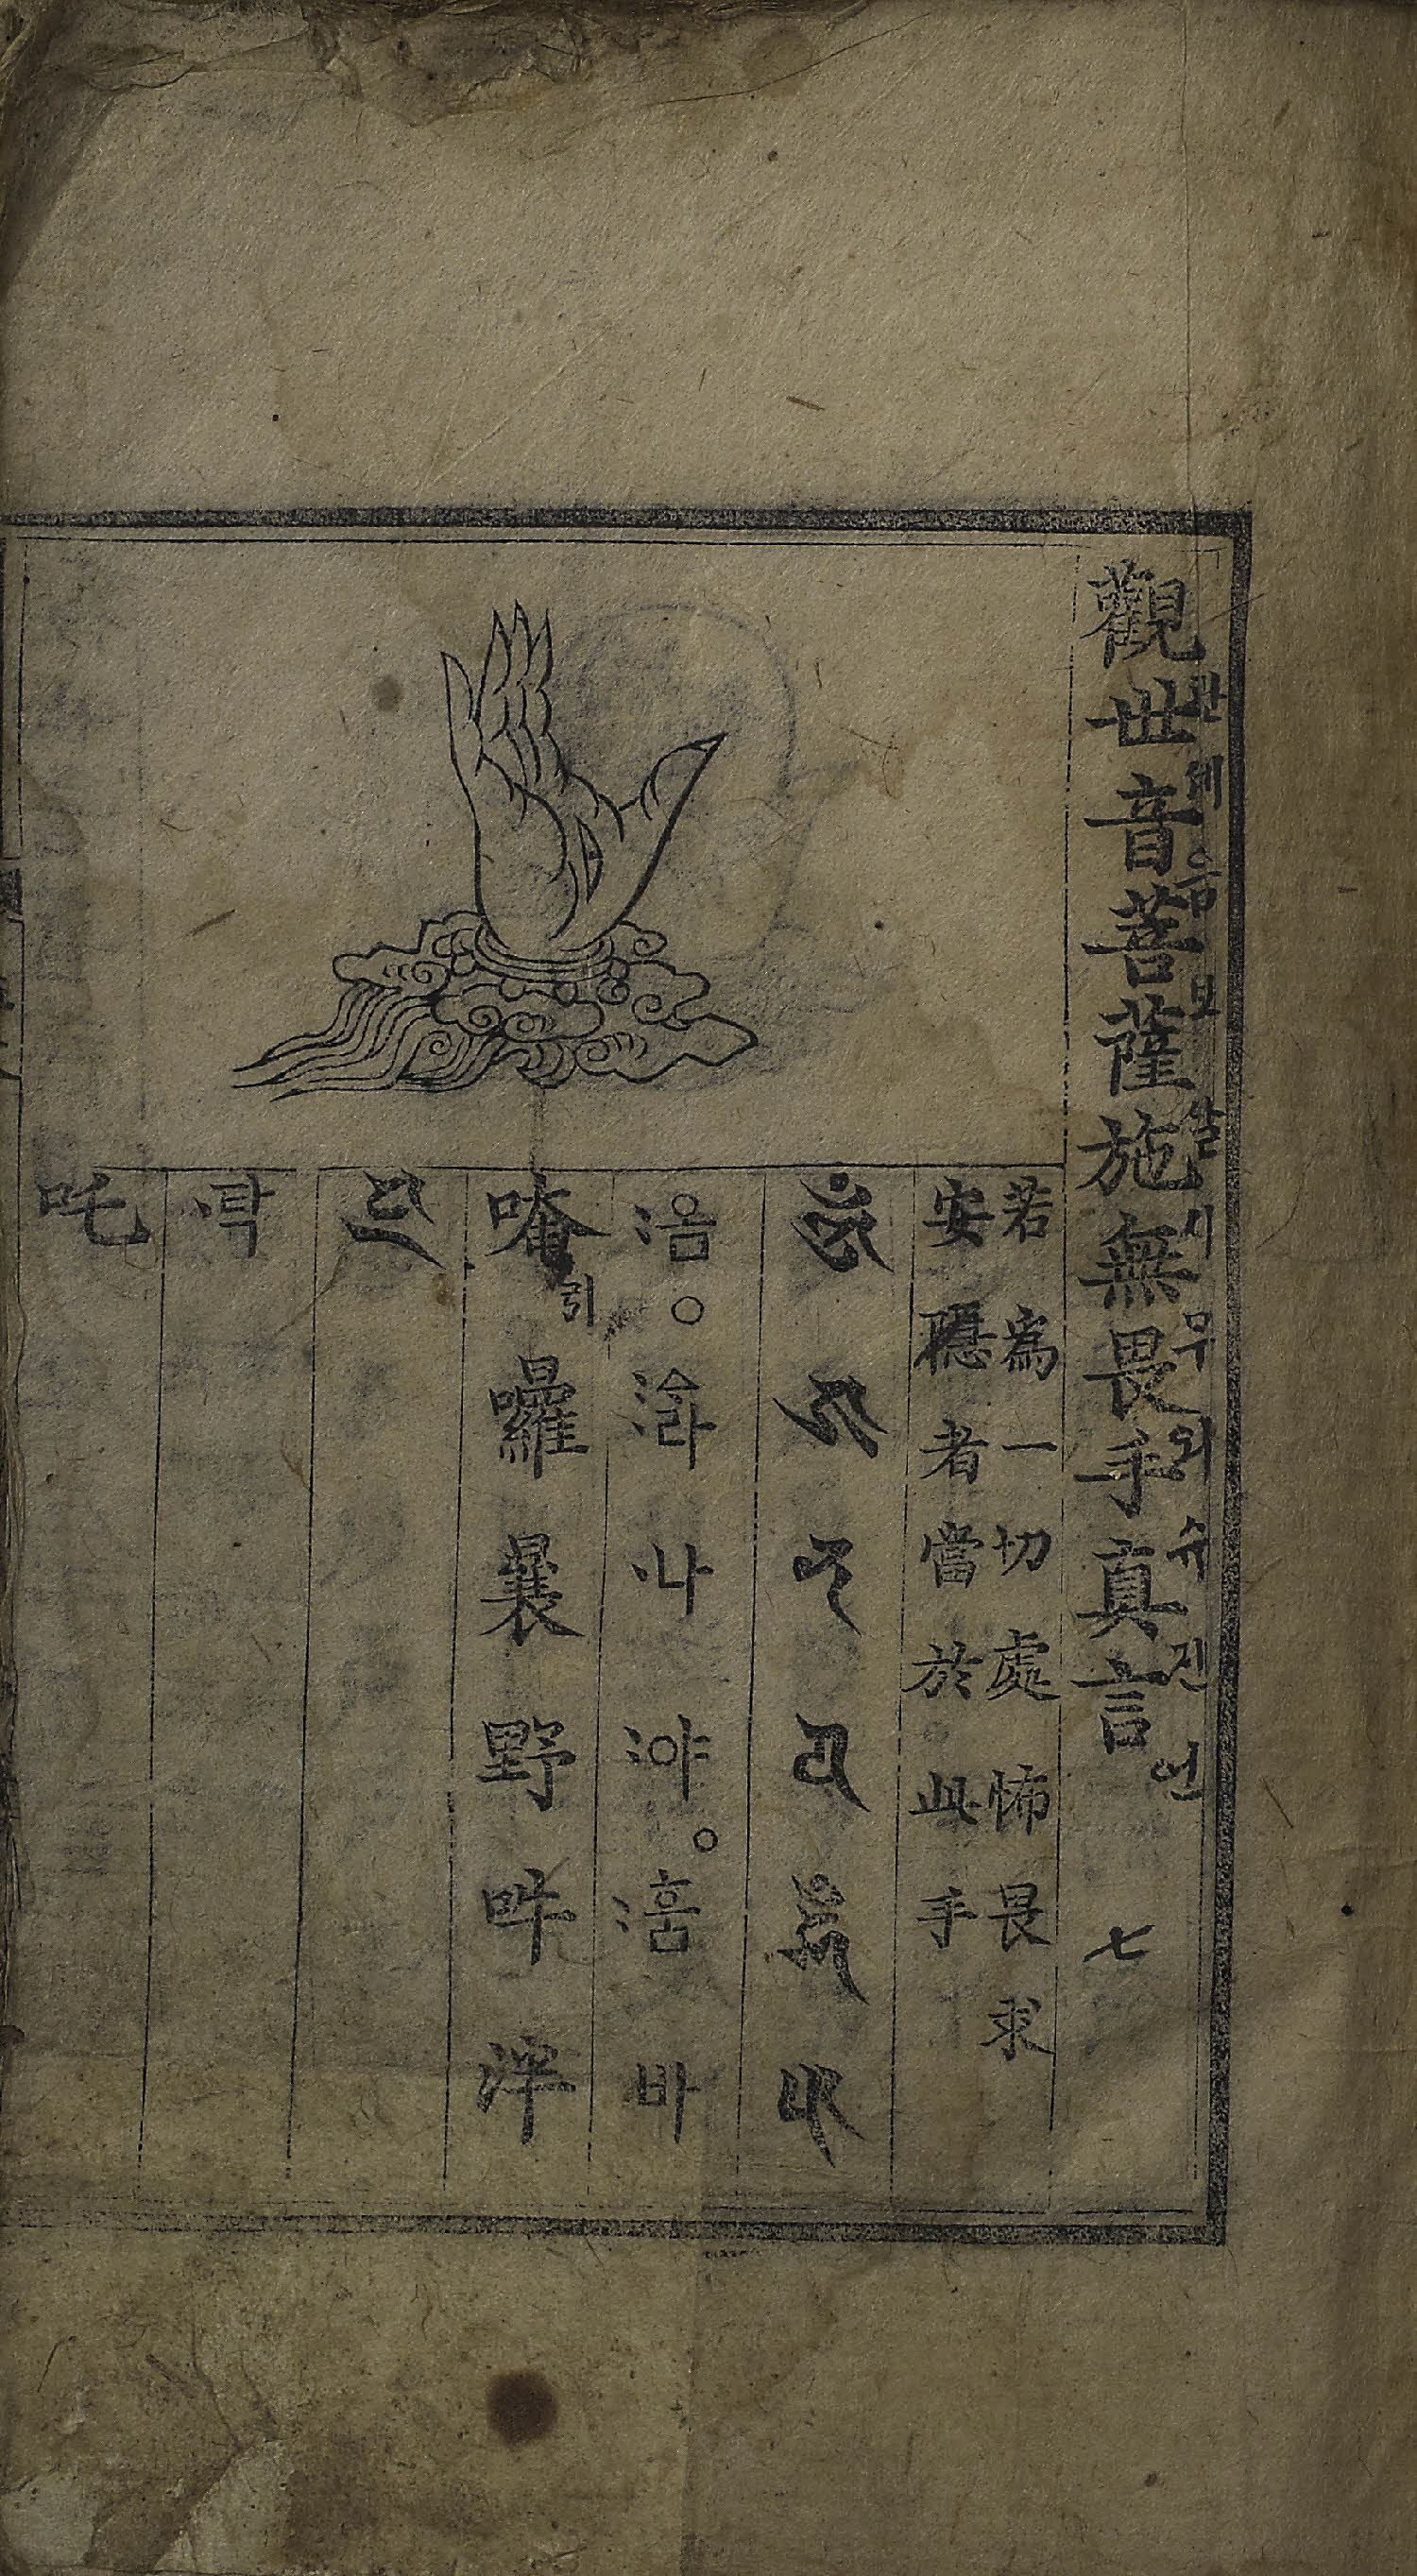 觀世音菩薩施無畏手真言 七
관셰음보살시무외슈진언
若爲一切處怖畏求
安隱者當於此手
옴 ○ 나 야 ○ 훔 바
唵引 囉 曩 野 吽 泮
탁
吒